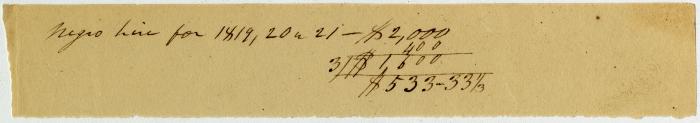 Negro hire for 1819, 20 & 21 - $2,000
400
3) $1,600
$533-33 1/3